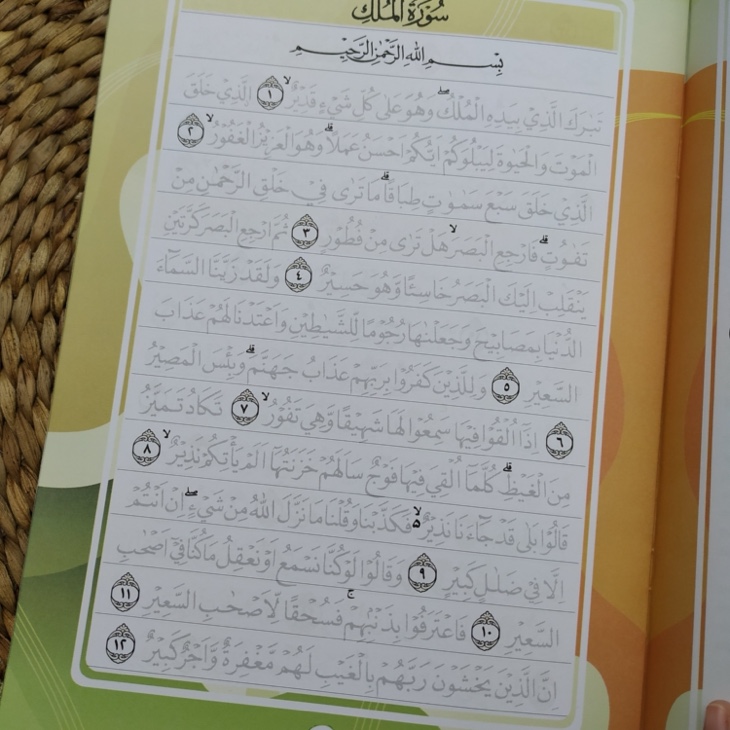 سُوْرَةُ الْمُلْكِ
بِسْمِ اللّٰهِ الرَّحْمٰنِ الرَّحِيْمِ
تَبٰرَكَ الَّذِيْ بِيَدِهِ الْمُلْكُۖ وَهُوَ عَلٰى كُلِّ شَيْءٍ قَدِيْرٌۙ ١ الَّذِيْ خَلَقَ
الْمَوْتَ وَالْحَيٰوةَ لِيَبْلُوَكُمْ اَيُّكُمْ اَحْسَنُ عَمَلًاۗ وَهُوَ الْعَزِيْزُ الْغَفُوْرُۙ ٢
الَّذِيْ خَلَقَ سَبْعَ سَمٰوٰتٍ طِبَاقًاۗ مَا تَرٰى فِيْ خَلْقِ الرَّحْمٰنِ مِنْ
تَفٰوُتٍۗ فَارْجِعِ الْبَصَرَۙ هَلْ تَرٰى مِنْ فُطُوْرٍ ٣ ثُمَّ ارْجِعِ الْبَصَرَ كَرَّتَيْنِ
يَنْقَلِبْ اِلَيْكَ الْبَصَرُ خَاسِئًا وَّهُوَ حَسِيْرٌ ٤ وَلَقَدْ زَيَّنَّا السَّمَاۤءَ
الدُّنْيَا بِمَصَابِيْحَ وَجَعَلْنٰهَا رُجُوْمًا لِّلشَّيٰطِيْنِ وَاَعْتَدْنَا لَهُمْ عَذَابَ
السَّعِيْرِ ٥ وَلِلَّذِيْنَ كَفَرُوْا بِرَبِّهِمْ عَذَابُ جَهَنَّمَۗ وَبِئْسَ الْمَصِيْرُ
٦ اِذَآ اُلْقُوْا فِيْهَا سَمِعُوْا لَهَا شَهِيْقًا وَّهِيَ تَفُوْرُۙ ٧ تَكَادُ تَمَيَّزُ
مِنَ الْغَيْظِۗ كُلَّمَآ اُلْقِيَ فِيْهَا فَوْجٌ سَاَلَهُمْ خَزَنَتُهَآ اَلَمْ يَأْتِكُمْ نَذِيْرٌۙ ٨
قَالُوْا بَلٰى قَدْ جَاۤءَنَا نَذِيْرٌ ەۙ فَكَذَّبْنَا وَقُلْنَا مَا نَزَّلَ اللّٰهُ مِنْ شَيْءٍۖ اِنْ اَنْتُمْ
اِلَّا فِيْ ضَلٰلٍ كَبِيْرٍ ٩ وَقَالُوْا لَوْ كُنَّا نَسْمَعُ اَوْ نَعْقِلُ مَا كُنَّا فِيْٓ اَصْحٰبِ
السَّعِيْرِ ١٠ فَاعْتَرَفُوْا بِذَنْۢبِهِمْۚ فَسُحْقًا لِّاَصْحٰبِ السَّعِيْرِ ١١
اِنَّ الَّذِيْنَ يَخْشَوْنَ رَبَّهُمْ بِالْغَيْبِ لَهُمْ مَّغْفِرَةٌ وَّاَجْرٌ كَبِيْرٌ ١٢